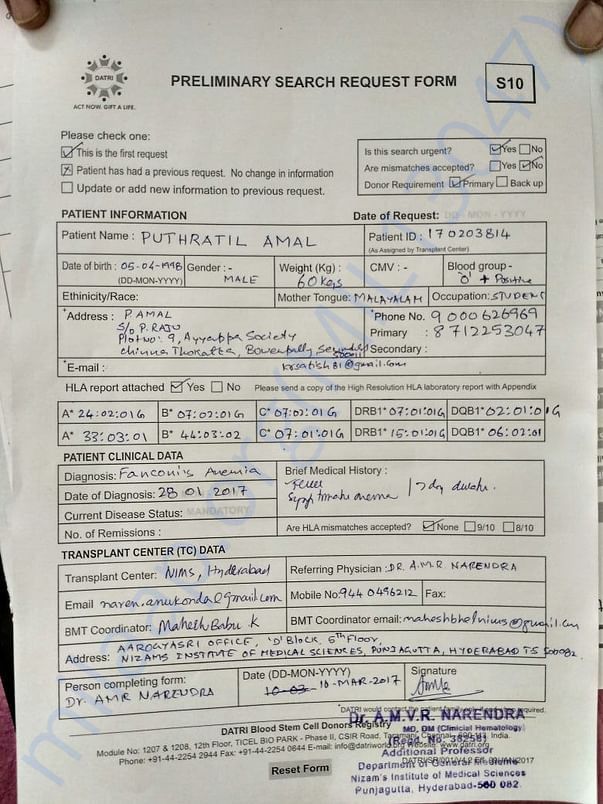 DATRI
ACT NOW. GIFT A LIFE.
PRELIMINARY SEARCH REQUEST FORM
S10
Please check one:
This is the first request
Patient has had a previous request. No change in information
Update or add new information to previous request.
Is this search urgent? Yes No
Are mismatches accepted? Yes No
Donor Requirement Primary Back up
PATIENT INFORMATION
Date of Request: DD - MON - YYYY
Patient Name : PUTHRATIL AMAL
Patient ID : 170203814
(As Assigned by Transplant Center)
Date of birth : 05-04-1998
(DD-MON-YYYY)
Gender :- MALE
Weight (Kg) : 60 kgs
CMV : -
Blood group - 'O' + Positive
Ethnicity/Race:
Mother Tongue: MALAYALAM
Occupation: STUDENT
*Address : P.AMAL
S/o P. RAJU
Plot No: 9, Ayyappa Society
chinna Thokatta, Bowenpally, Secunderabad
500011
*Phone No. 9 000626969
Primary : 8712253047
Secondary :
*E-mail : krsatish81@gmail.com
HLA report attached Yes No Please send a copy of the High Resolution HLA laboratory report with Appendix
A* 24:02:01G B* 07:02:01G C* 07:02:01G DRB1* 07:01:01G DQB1* 02:01:01G
A* 33:03:01 B* 44:03:02 C* 07:01:01G DRB1* 15:01:01G DQB1* 06:02:01
PATIENT CLINICAL DATA
Diagnosis: Fanconi's Anemia
Date of Diagnosis: 28 01 2017
Current Disease Status: MANDATORY
No. of Remissions :
Brief Medical History :
Fever
anemia
Are HLA mismatches accepted? None 9/10 8/10
TRANSPLANT CENTER (TC) DATA
Transplant Center: NIMS, Hyderabad
Referring Physician : DR. A.M.R. NARENDRA
Email naren.anukonda@gmail.com
Mobile No: 944 0496212
Fax:
BMT Coordinator: Mahesh Babu K
BMT Coordinator email: maheshbhelnims@gmail.com
Address: AAROGYASRI OFFICE, 'D' BLOCK, 5th FLOOR,
NIZAMS INSTITUTE OF MEDICAL SCIENCES, PUNJAGUTTA, HYDERABAD TS 500082
Person completing form:
Dr. AMR NARENDRA
Date (DD-MON-YYYY)
10-03- 16-MAR-2017
Signature
*DATRI would contact the patient family required.
DATRI Blood Stem Cell Donors Registry
Module No: 1207 & 1208, 12th Floor, TICEL BIO PARK - Phase II, CSIR Road, Taramani, Chennai India.
Phone: +91-44-2254 2944 Fax: +91-44-2254 0844 E-mail: info@datriworld.org Website: www.datri.org
Reset Form
Dr. A.M.V.R. NARENDRA
MD, DM (Clinicial Hematology)
(Regd. No. 38258)
Additional Professor
Department of General Medicine
Nizam's Institute of Medical Sciences
Punjagutta, Hyderabad-500 082.